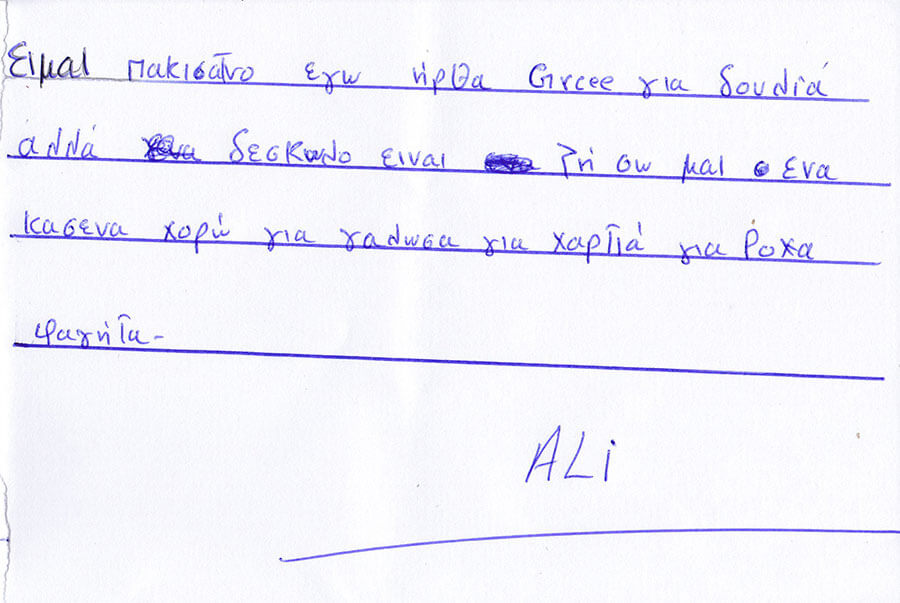 Ειμαι πακισάτνο εγω ήρθα Grcee για δουλιά
άλλά δεσκωλο ειναι ζή σω μαι ενα
κασενα χορώ για γαλωσα για χαρτιά για Ρόχα
φαγήτα-
ALi